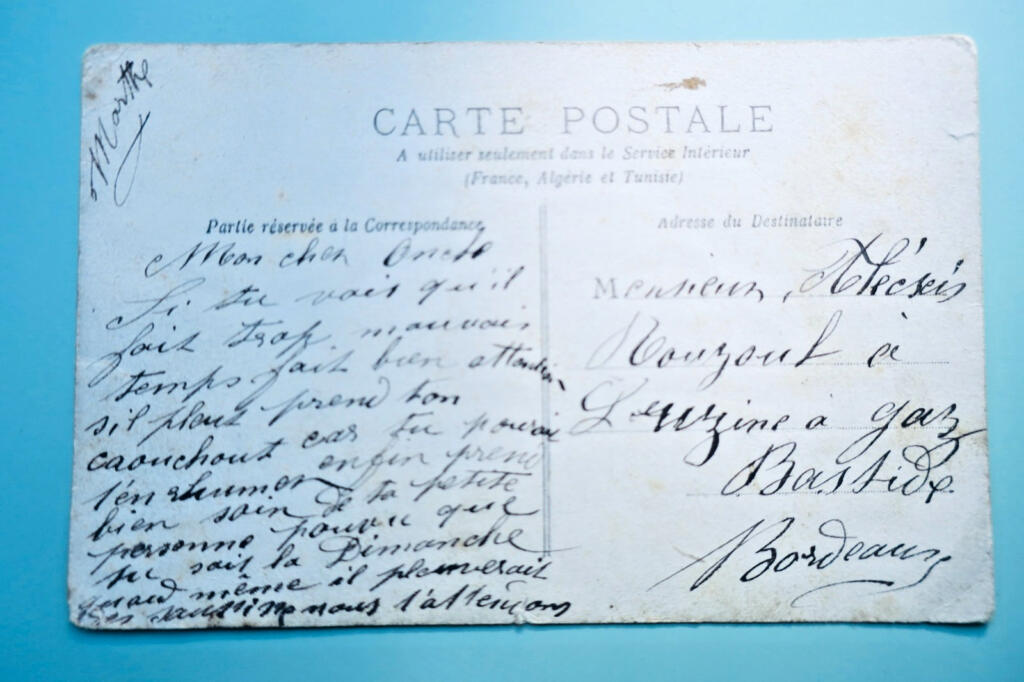 Marthe
CARTE POSTALE
A utiliser seulement dans le Service Intérieur
(France, Algérie et Tunisie)
Partie réservée à la Correspondance
Adresse du Destinataire
Mon cher Oncle
Si tu vois qu'il
fait trop mauvais
temps fait bien attention
sil pleut prend ton
caouchout car tu pourai
t'enrhumer enfin prend
bien soin de ta petite
personne pouvu que
tu soit la Dimanche
quand même il pleuverait
nous t'attençons
Monsieur Alécsis
Rouzoul à
L'uzine à gaz
Bastide
Bordeaux